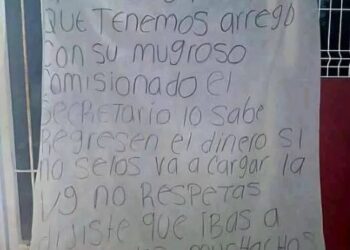 QUE TENEMOS arreglo
CON su mugroso
Comisionado el
Secretario lo sabe
Regresen el dinero si
no selos va a cargar la
vg no RESPETAS
dijiste que iBas a
muchachos